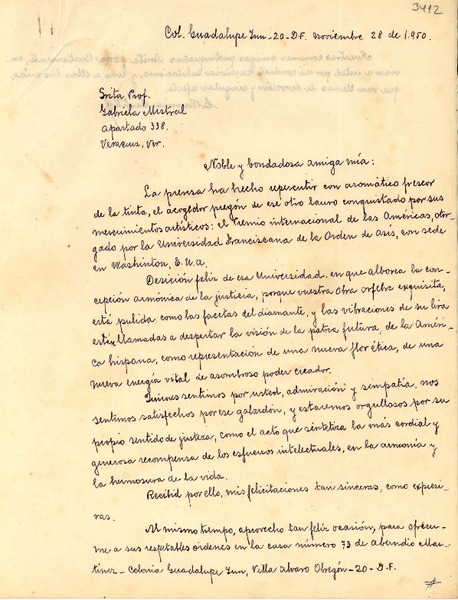 3412
Col. Guadalupe Inn-20-D.F. noviembre 28 de 1.950.
Srita. Prof.
Gabriela Mistral
Apartado 338.
Veracruz, Ver.
Noble y bondadosa amiga mía:
La prensa ha hecho repercutir con aromático frescor
de la tinta, el acogedor pregón de ese otro lauro conquistado por sus
merecimientos artísticos: el Premio internacional de Las Américas, otor-
gado por la Universidad Franciscana de la Orden de Asís, con sede
en Washinton, E.U.A.
Desición feliz de esa Universidad, en que alborea la con-
cepción armónica de la justicia, porque vuestra obra orfebre exquisita,
está pulida como las facetas del diamante, y las vibraciones de su lira
están llamadas a despertar la visión de la patria futura, de la Améri-
ca hispana, como representación de una nueva flor ética, de una
nueva energía vital de asombroso poder creador.
Quienes sentimos por usted, admiración y simpatía, nos
sentimos satisfechos por ese galardón, y estaremos orgullosos por su
propio sentido de justeza, como el acto que sintetiza la más cordial y
generosa recompensa de los esfuerzos intelectuales, en la armonía y
la hermosura de la vida.
Recibid por ello, mis felicitaciones tan sinceras, como expresi-
vas.
Al mismo tiempo, aprovecho tan feliz ocasión, para ofrecer-
me a sus respetables órdenes en la casa número 73 de Abundio Mar-
tínez - Colonia Guadalupe Inn, Villa Alvaro Obregón-20-D.F.
#